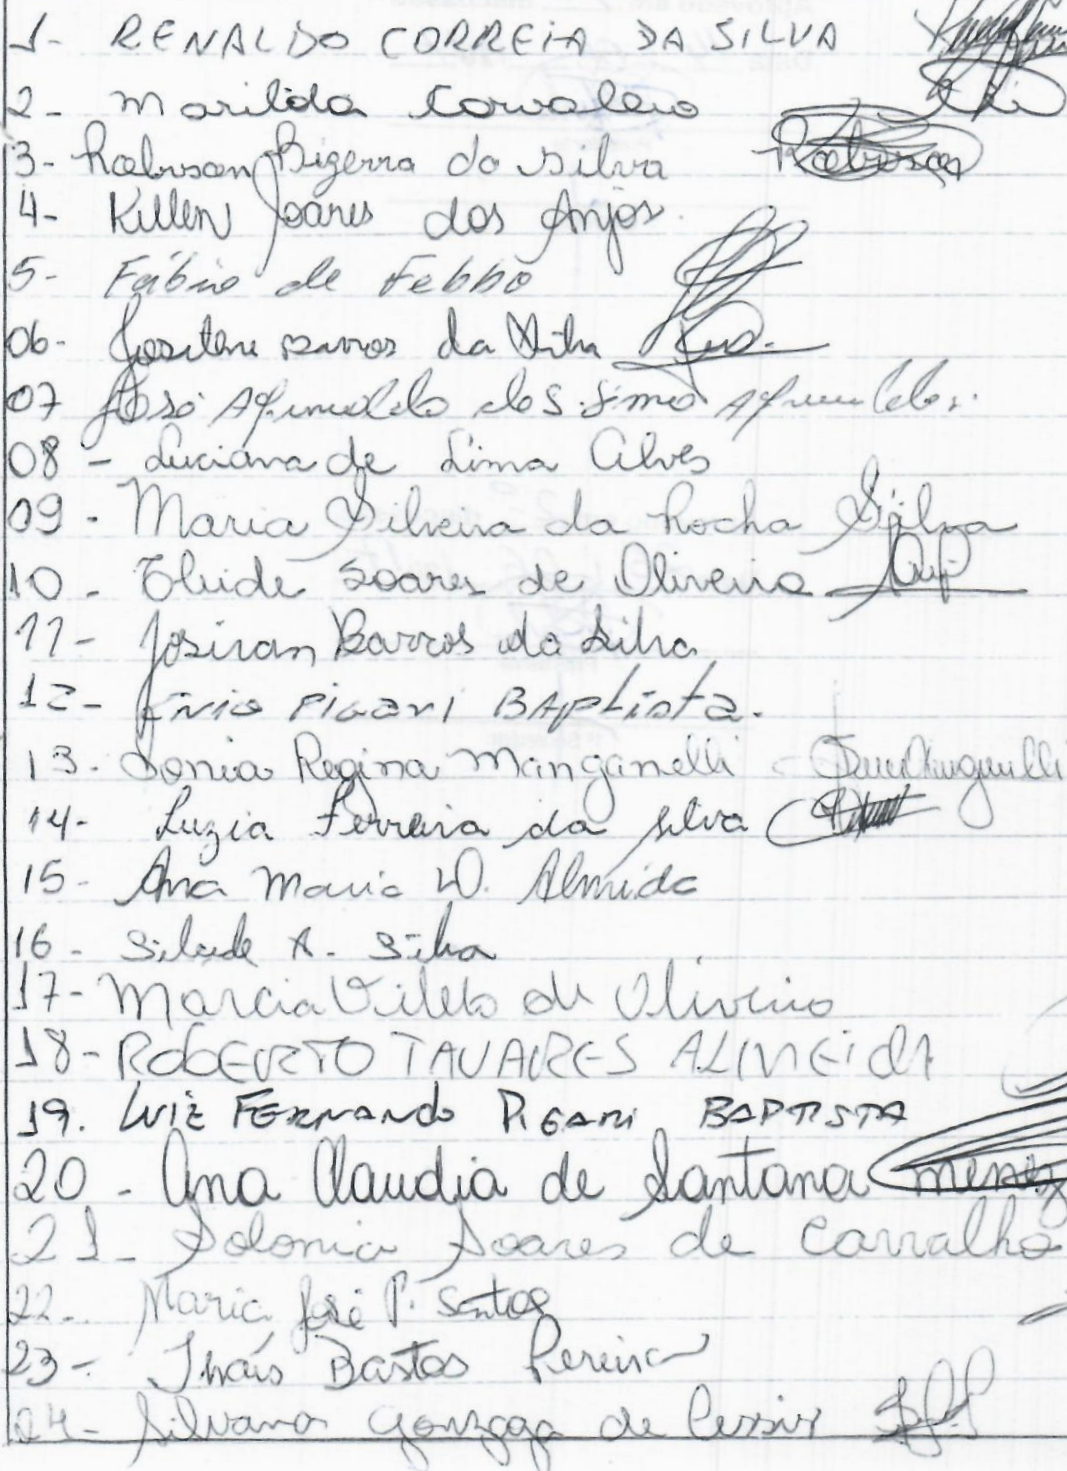 1- RENALDO CORREIA DA SILVA
2- Marilda Carvalho
3- Robson Bizerra da Silva Robson
4- Killen Soares dos Anjos
5- Fábio de Febbo
06- Josilene Barros da Silva
07 José dos
08 - Luciana de Lima Alves
09 - Maria Silveira da Rocha Silva
10 - Soares de Oliveira
11- Josivan Barros da Silva
12- Enio Pigari BAptista.
13- Sonia Regina Manganelli
14- Luzia Ferreira da Silva
15- Ana Maria D. Almida
16- A. Silva
17- Marcia de Oliveira
18- ROBERTO TAVARES ALMEIDA
19. LUIZ FERNANDO PIGARI BAPTISTA
20 - Ana Claudia de Santana menez
21- Polonia Soares de Carvalho
22- Maria José P. Santos
23- Thaís Bastos Pereira
24- Silvana Gonzaga de